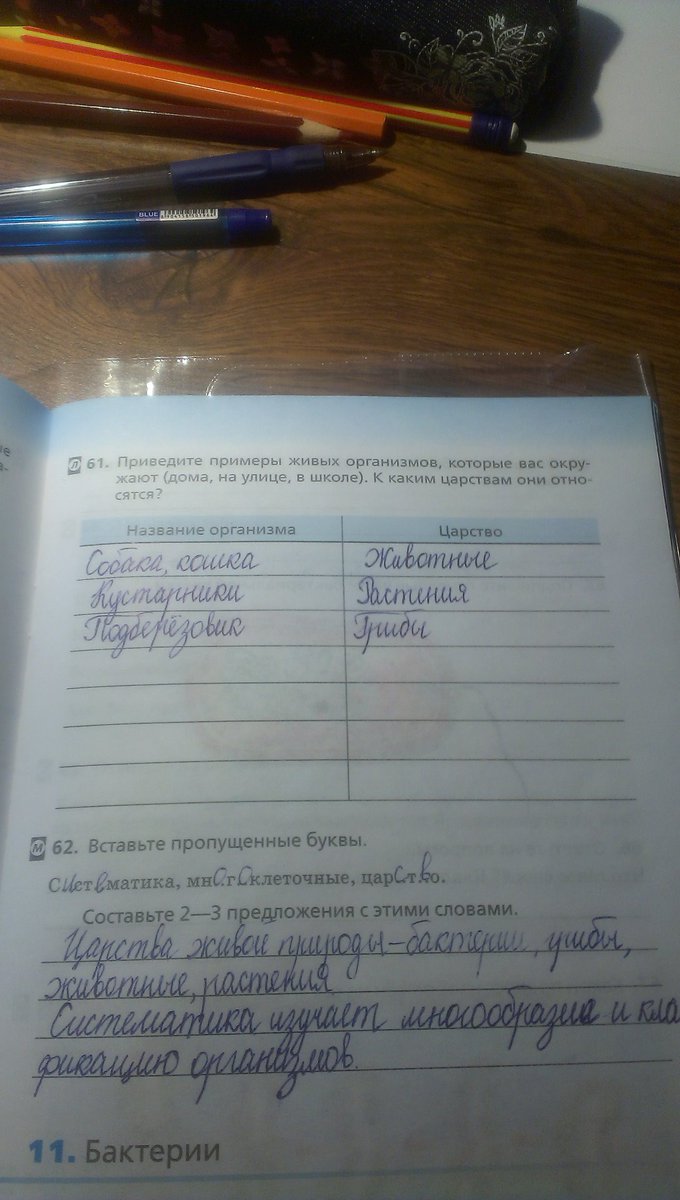 BLUE
61. Приведите примеры живых организмов, которые вас окру-
жают (дома, на улице, в школе). К каким царствам они отно-
сятся?
Название организма Царство
Собака, кошка Животные
Кустарники Растения
Подберёзовик Грибы
М 62. Вставьте пропущенные буквы.
Систематика, многоклеточные, царство.
Составьте 2—3 предложения с этими словами.
Царства живой природы – бактерии, грибы,
животные, растения
Систематика изучает многообразие и кла
фикацию организмов.
11. Бактерии